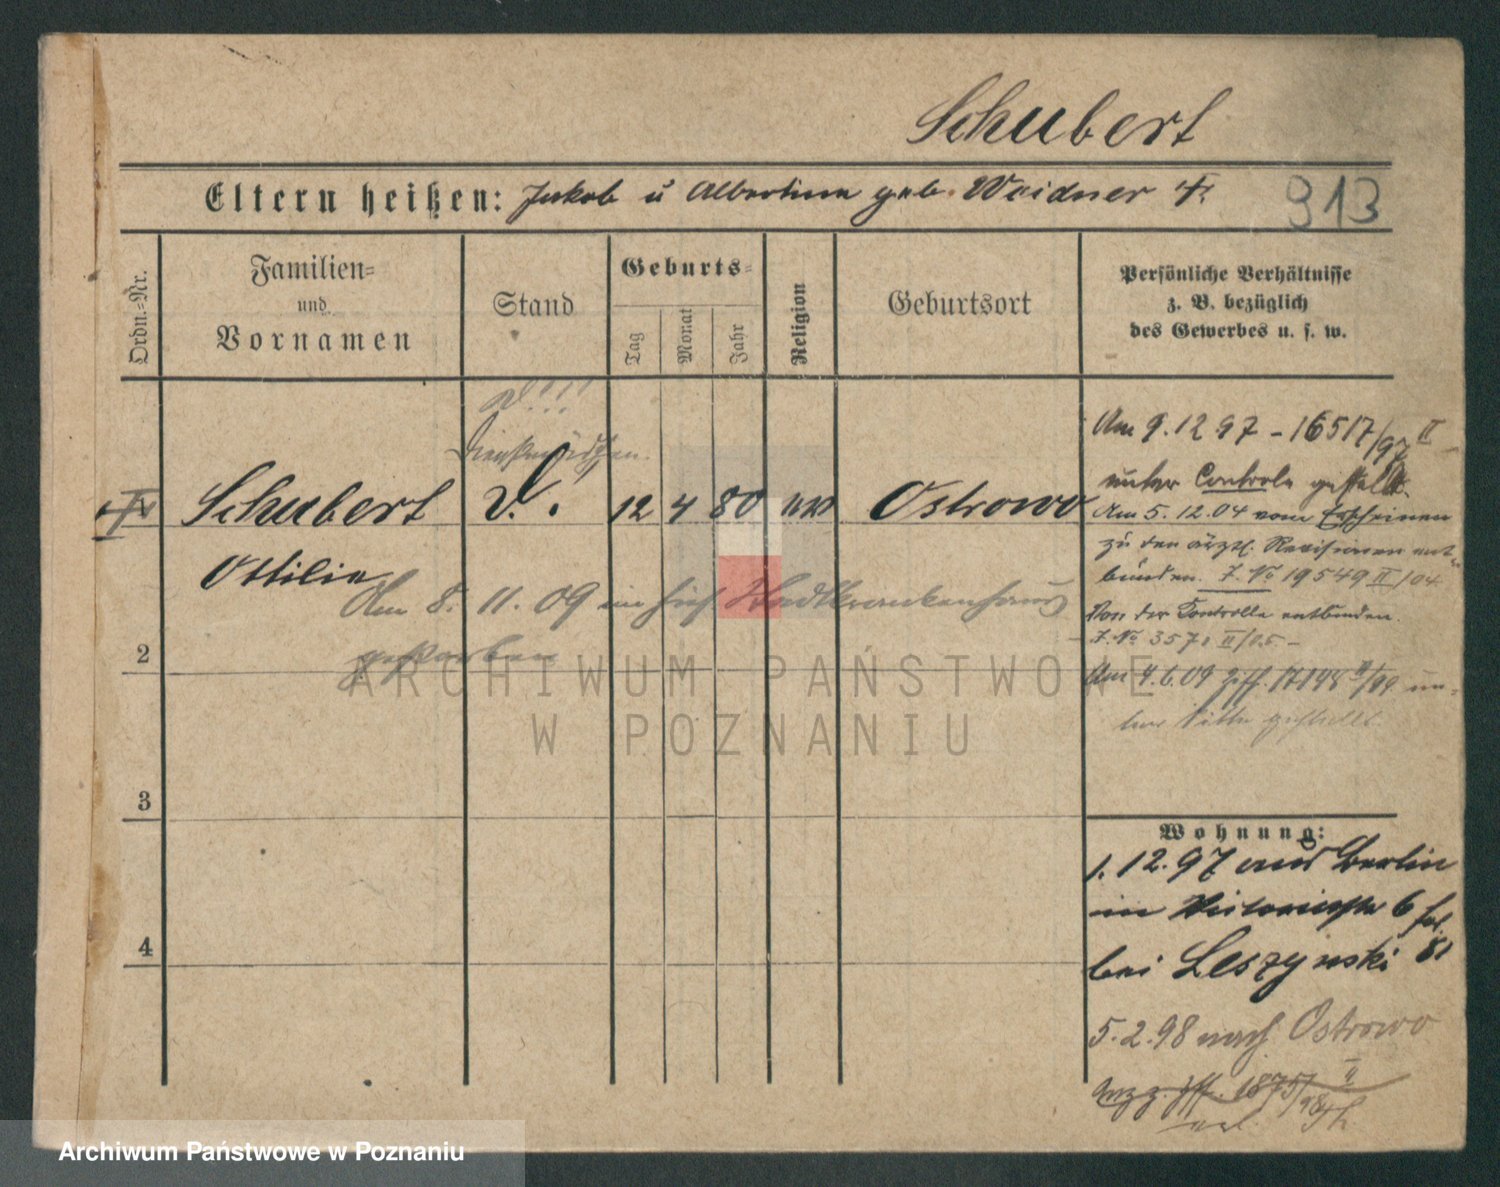 Schubert
Eltern heißen: Jakob u Albertine geb. Weidner
913
Ordn.-Nr.
Familien-
und
Vornamen
Stand
Geburts-
Tag
Monat
Jahr
Religion
Geburtsort
Persönliche Verhältnisse
z. B. bezüglich
des Gewerbes u. s. w.
Dienstmädchen.
Schubert
12 4 80
Ostrowo
Ottilie
Am 8. 11. 09 im hies. Stadtkrankenhaus
gestorben
2
3
4
Am 9. 12 97 - 16517/97 II
unter Controle gestellt.
Am 5. 12. 04 vom Erscheinen
zu den ärztl. Revisionen ent-
bunden. J. No 19549 II/04
Von der Controlle entbunden.
Am 4. 6. 09
gestellt
Wohnung:
1. 12. 97 aus Berlin
in Victoriastr 6
bei Leszynski
5. 2. 98 nach Ostrowo
ARCHIWUM PAŃSTWOWE
W POZNANIU
Archiwum Państwowe w Poznaniu